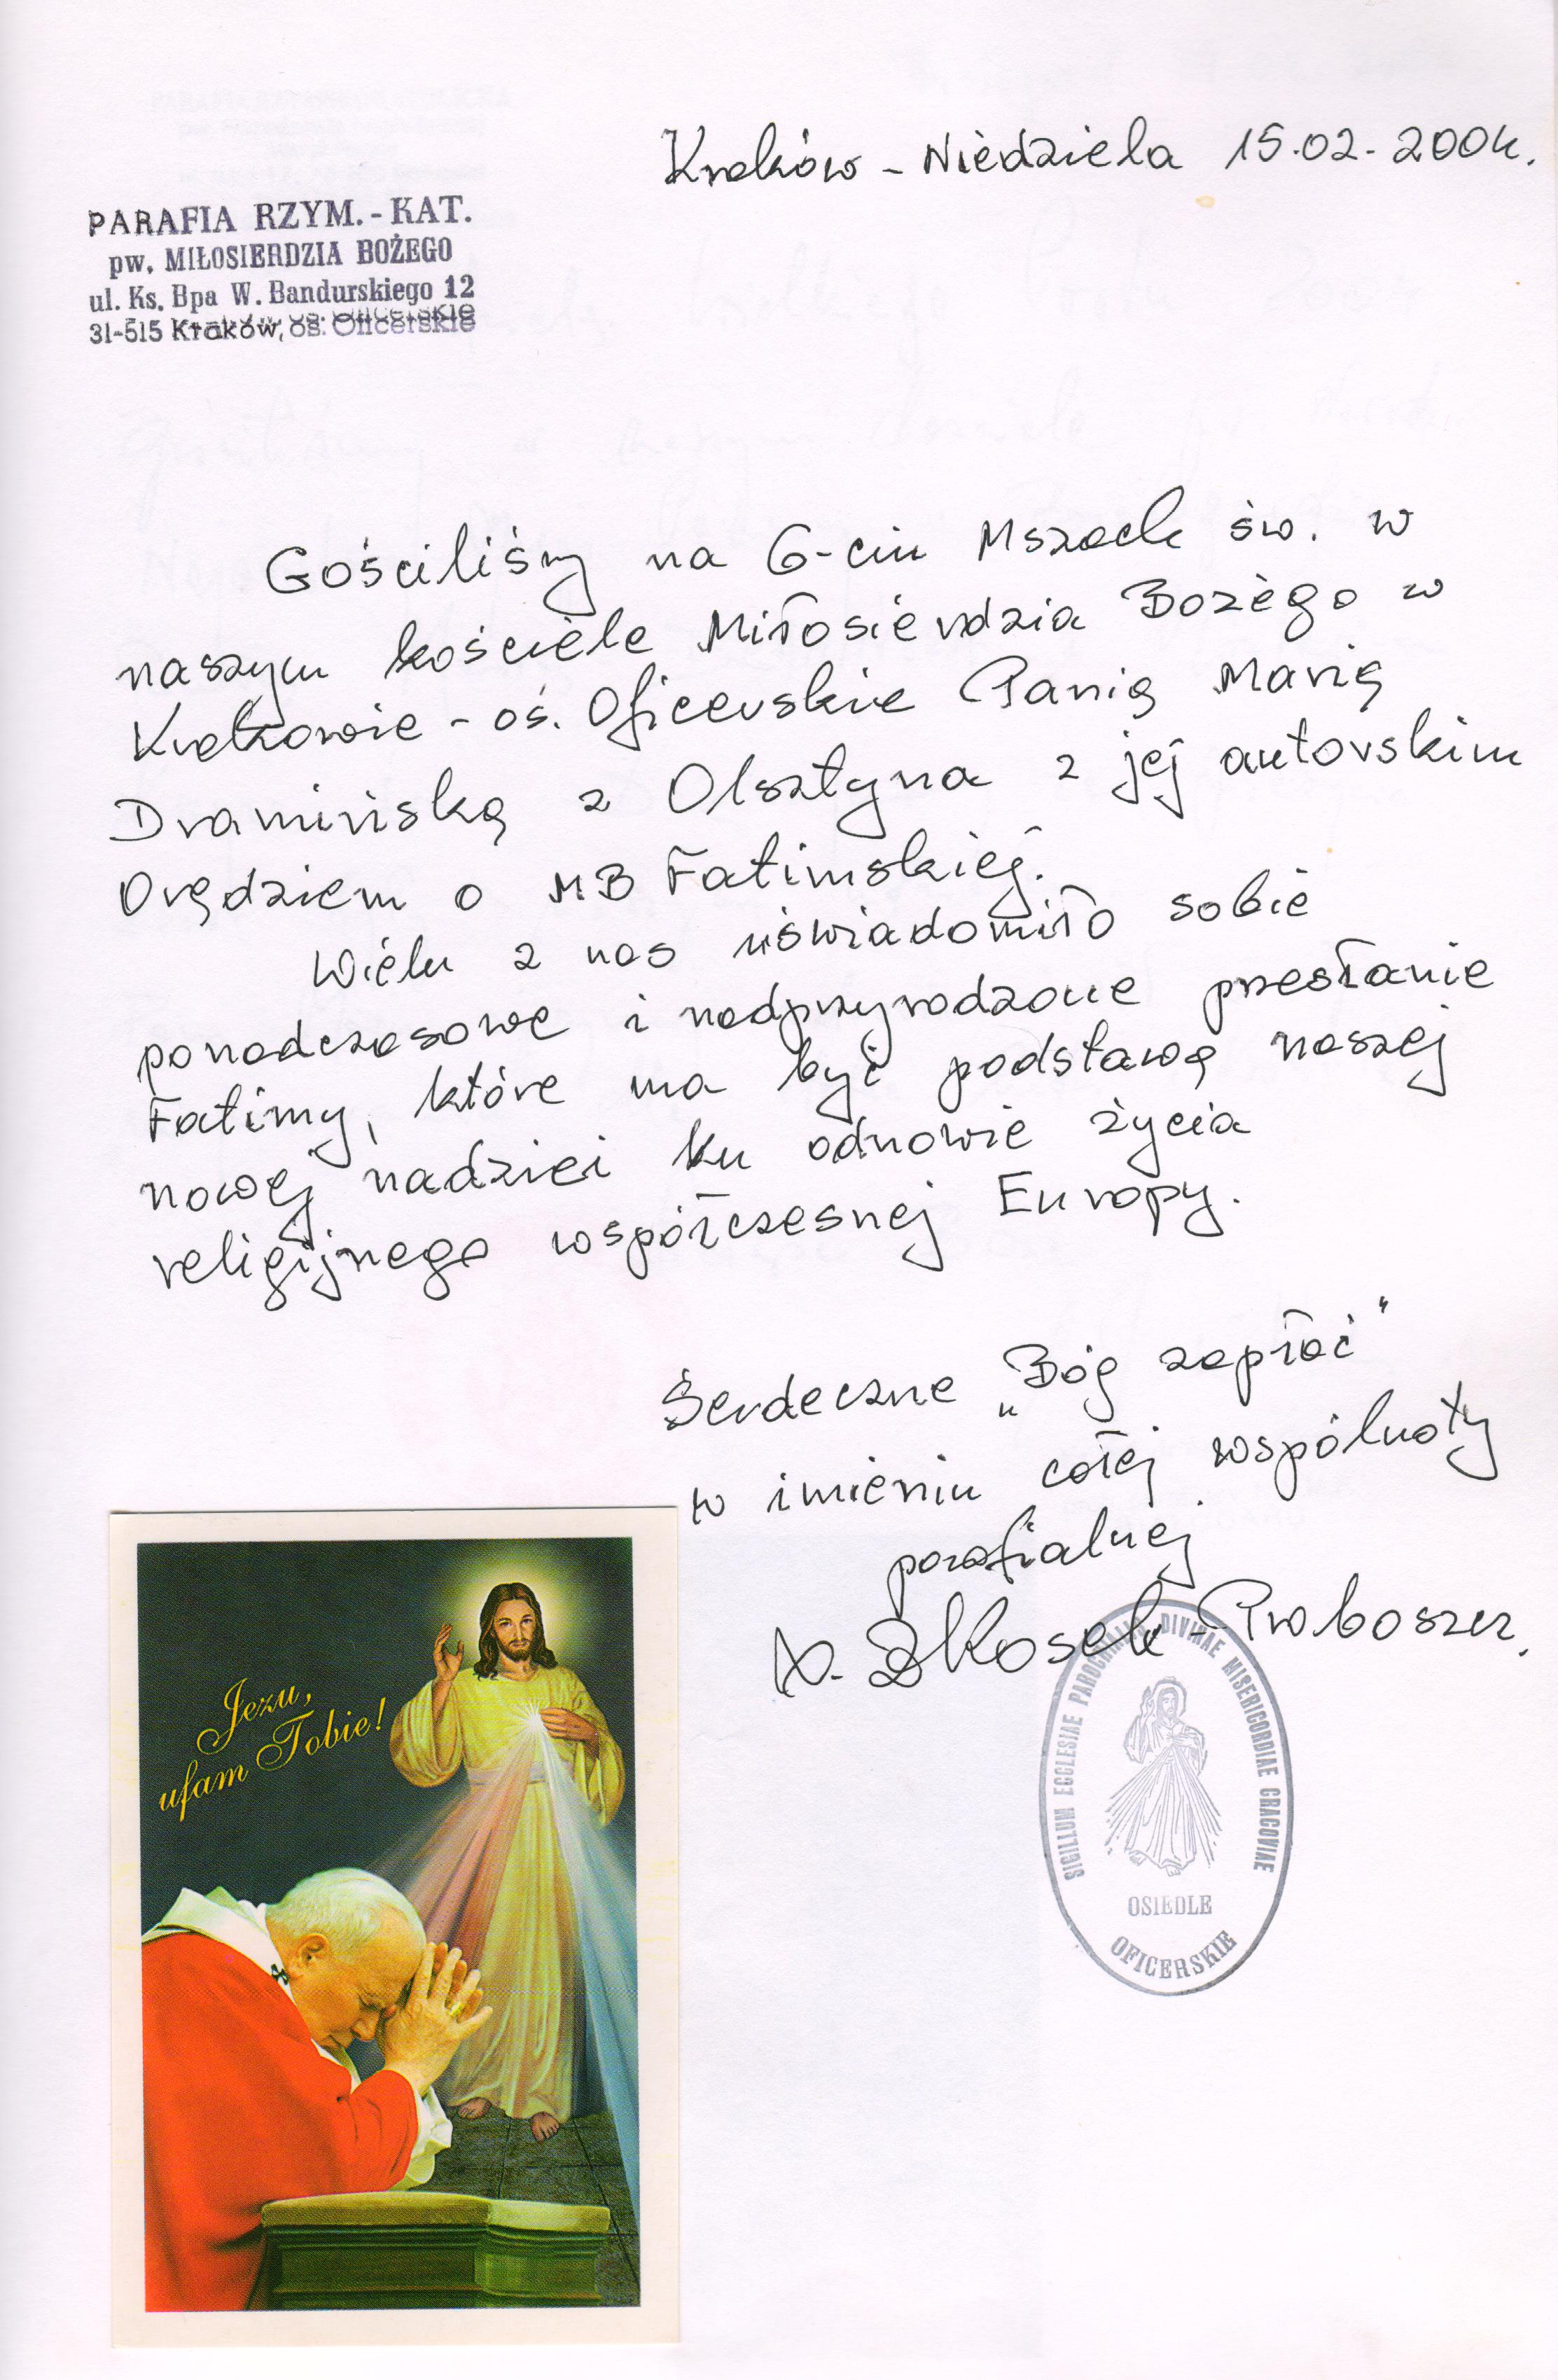 Kraków - Niedziela 15.02.2004.
PARAFIA RZYM.-KAT.
pw. MIŁOSIERDZIA BOŻEGO
ul. Ks. Bpa W. Bandurskiego 12
31-515 Kraków, os. Oficerskie
Gościliśmy na 6-ciu Mszach św. w
naszym kościele Miłosierdzia Bożego w
Krakowie - oś. Oficerskie Panią Marię
Dramińską z Olsztyna z jej autorskim
Orędziem o MB Fatimskiej.
Wielu z nas uświadomiło sobie
ponadczasowe i nadprzyrodzone przesłanie
Fatimy, które ma być podstawą naszej
nowej nadziei ku odnowie życia
religijnego współczesnej Europy.
Serdeczne „Bóg zapłać"
w imieniu całej wspólnoty
parafialnej
Proboszcz.
Jezu,
ufam Tobie!
SIGILLUM ECCLESIAE PAROCHIALIS DIVINAE MISERICORDIAE CRACOVIAE
OSIEDLE
OFICERSKIE